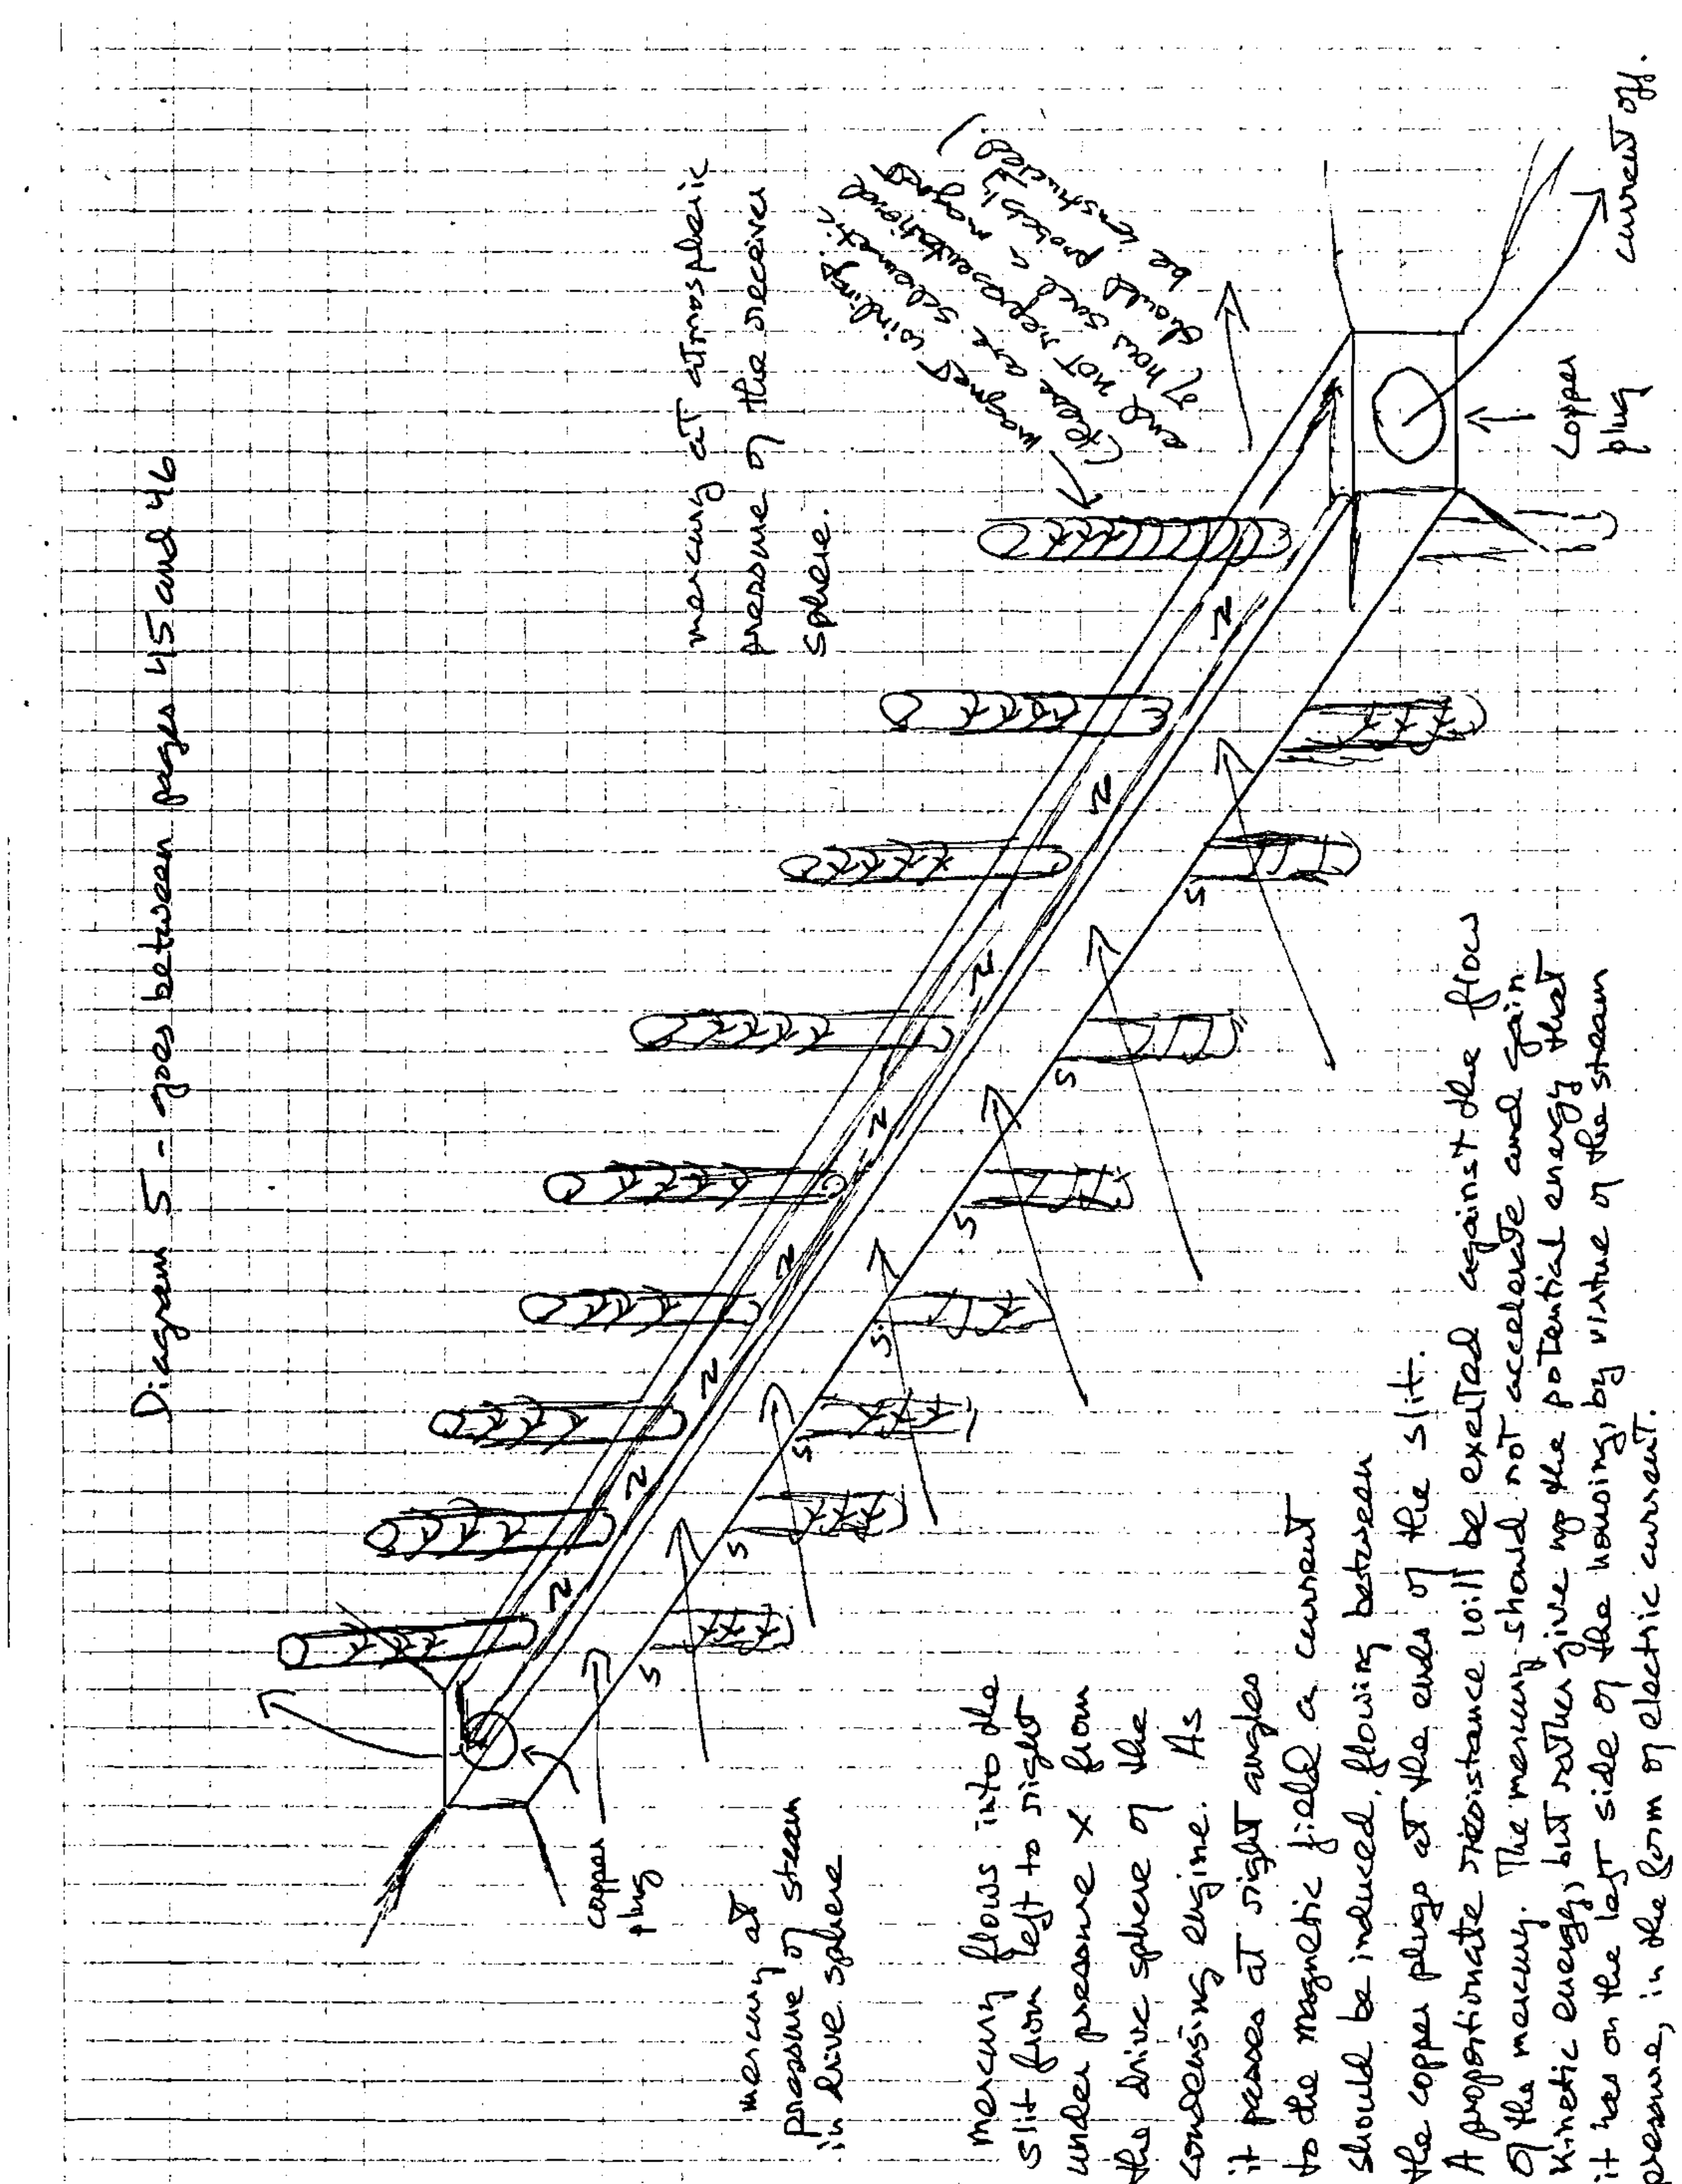 Diagram 5 - goes between pages 45 and 46
mercury at atmospheric
pressure of the receiver
sphere.
magnet windings.
(these are schematic
and not representational
of how such a magnet
should probably
be constructed.)
copper
plug
current off.
N
N
N
N
N
N
N
N
N
S
S
S
S
S
S
S
S
copper
plug
mercury at
pressure of steam
in drive sphere
mercury flows into the
slit from left to right
under pressure x from
the drive sphere of the
condensing engine. As
it passes at right angles
to the magnetic field a current
should be induced, flowing between
the copper plugs at the ends of the slit.
A proportionate resistance will be exerted against the flow
of the mercury. The mercury should not accelerate and gain
kinetic energy, but rather give up the potential energy that
it has on the left side of the housing, by virtue of the steam
pressure, in the form of electric current.